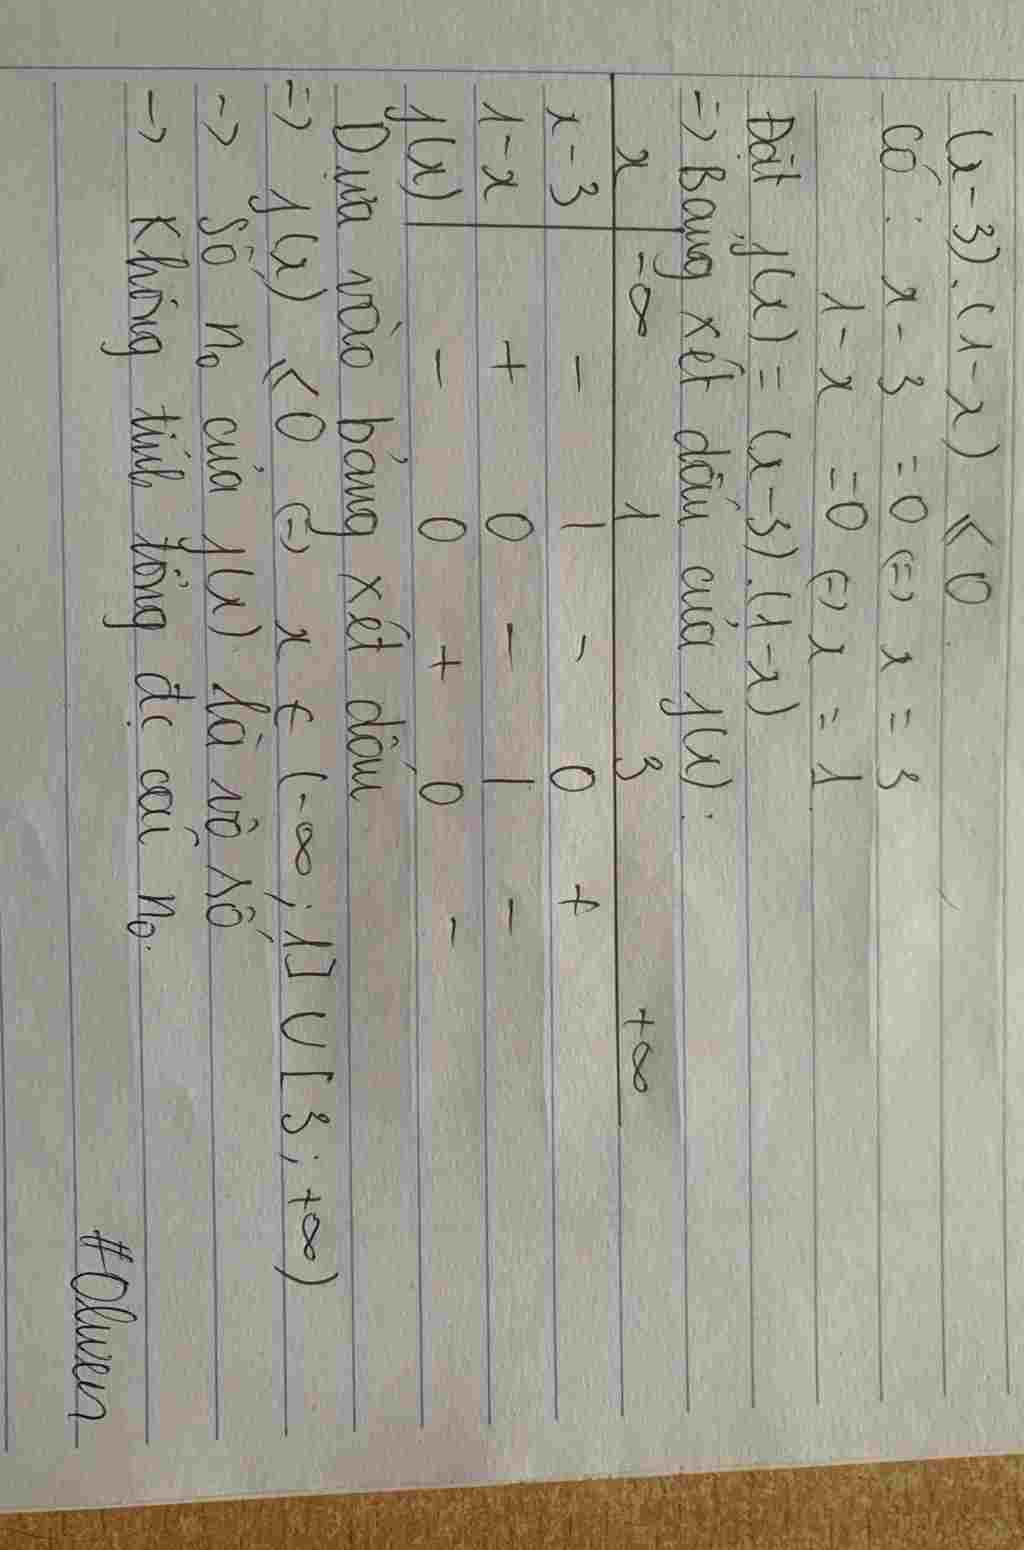 (x-3).(1-x) ≤ 0.
Có: x-3 =0 <=> x = 3
1-x =0 <=> x = 1
Đặt f(x) = (x-3).(1-x)
=> Bảng xét dấu của f(x):
x -∞ 1 3 +∞
x-3 - | - 0 +
1-x + 0 - | -
f(x) - 0 + 0 -
Dựa vào bảng xét dấu
=> f(x) ≤ 0 <=> x ∈ (-∞; 1] ∪ [3; +∞)
-> Số n₀ của f(x) là vô số
-> Không tính tổng đc các n₀.
#Oliwen